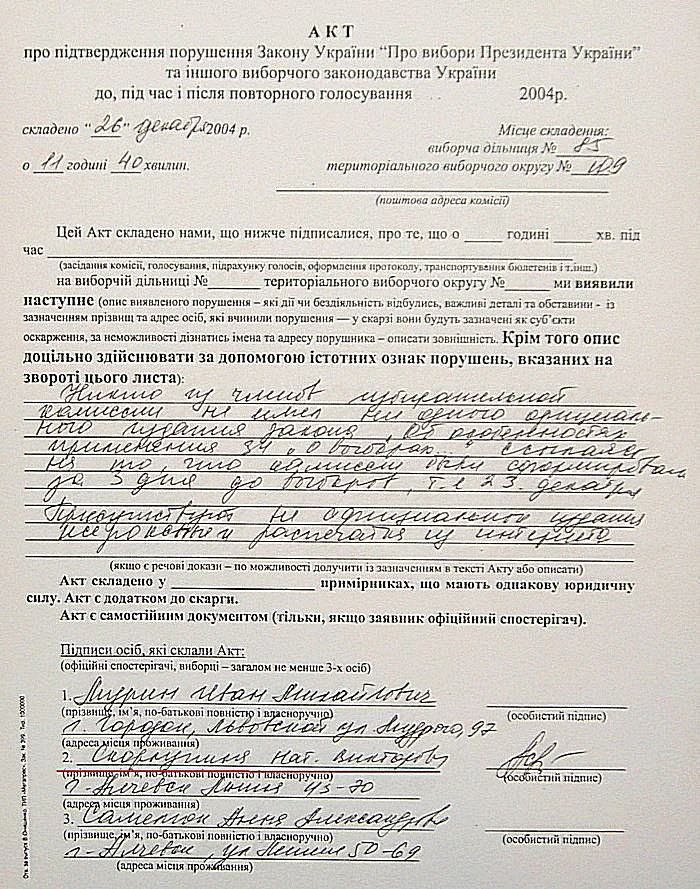 АКТ
про підтвердження порушення Закону України “Про вибори Президента України”
та іншого виборчого законодавства України
до, під час і після повторного голосування 2004р.
складено “26” декабря 2004 р.
Місце складення:
виборча дільниця № 85
о 11 годині 40 хвилин.
територіального виборчого округу № 109
(поштова адреса комісії)
Цей Акт складено нами, що нижче підписалися, про те, що о _____ годині _____ хв. під
час
(засідання комісії, голосування, підрахунку голосів, оформлення протоколу, транспортування бюлетенів і т.інш.)
на виборчій дільниці №_______ територіального виборчого округу №______ ми виявили
наступне (опис виявленого порушення – які дії чи бездіяльність відбулись, важливі деталі та обставини - із
зазначенням прізвищ та адрес осіб, які вчинили порушення — у скарзі вони будуть зазначені як суб’єкти
оскарження, за неможливості дізнатись імена та адресу порушника – описати зовнішність. Крім того опис
доцільно здійснювати за допомогою істотних ознак порушень, вказаних на
звороті цього листа):
Никто из членов избирательной
комиссии не имел ни одного официаль-
ного издания закона „Об особенностях
применения ЗУ „О выборах..." ссылаясь
на то, что комиссии были сформированы
за 3 дня до выборов, т.е 23. декабря
Присутствуют не официальные издания
ксерокопии распечатки из интернета
(якщо є речові докази – по можливості долучити із зазначенням в тексті Акту або описати)
Акт складено у ____________________ примірниках, що мають однакову юридичну
силу. Акт є додатком до скарги.
Акт є самостійним документом (тільки, якщо заявник офіційний спостерігач).
Підписи осіб, які склали Акт:
(офіційні спостерігачі, виборці – загалом не менше 3-х осіб)
1. Иван Михайлович
(прізвище, ім’я, по-батькові повністю і власноручно)
(особистий підпис)
г. Городок, Львовской ул 97
(адреса місця проживання)
2. Нат. Викторовн
(прізвище, ім’я, по-батькові повністю і власноручно)
(особистий підпис)
г. Алчевск 45-70
(адреса місця проживання)
3. Анна Александровна
(прізвище, ім’я, по-батькові повністю і власноручно)
(особистий підпис)
г. Алчевск, ул Ленина 50-69
(адреса місця проживання)